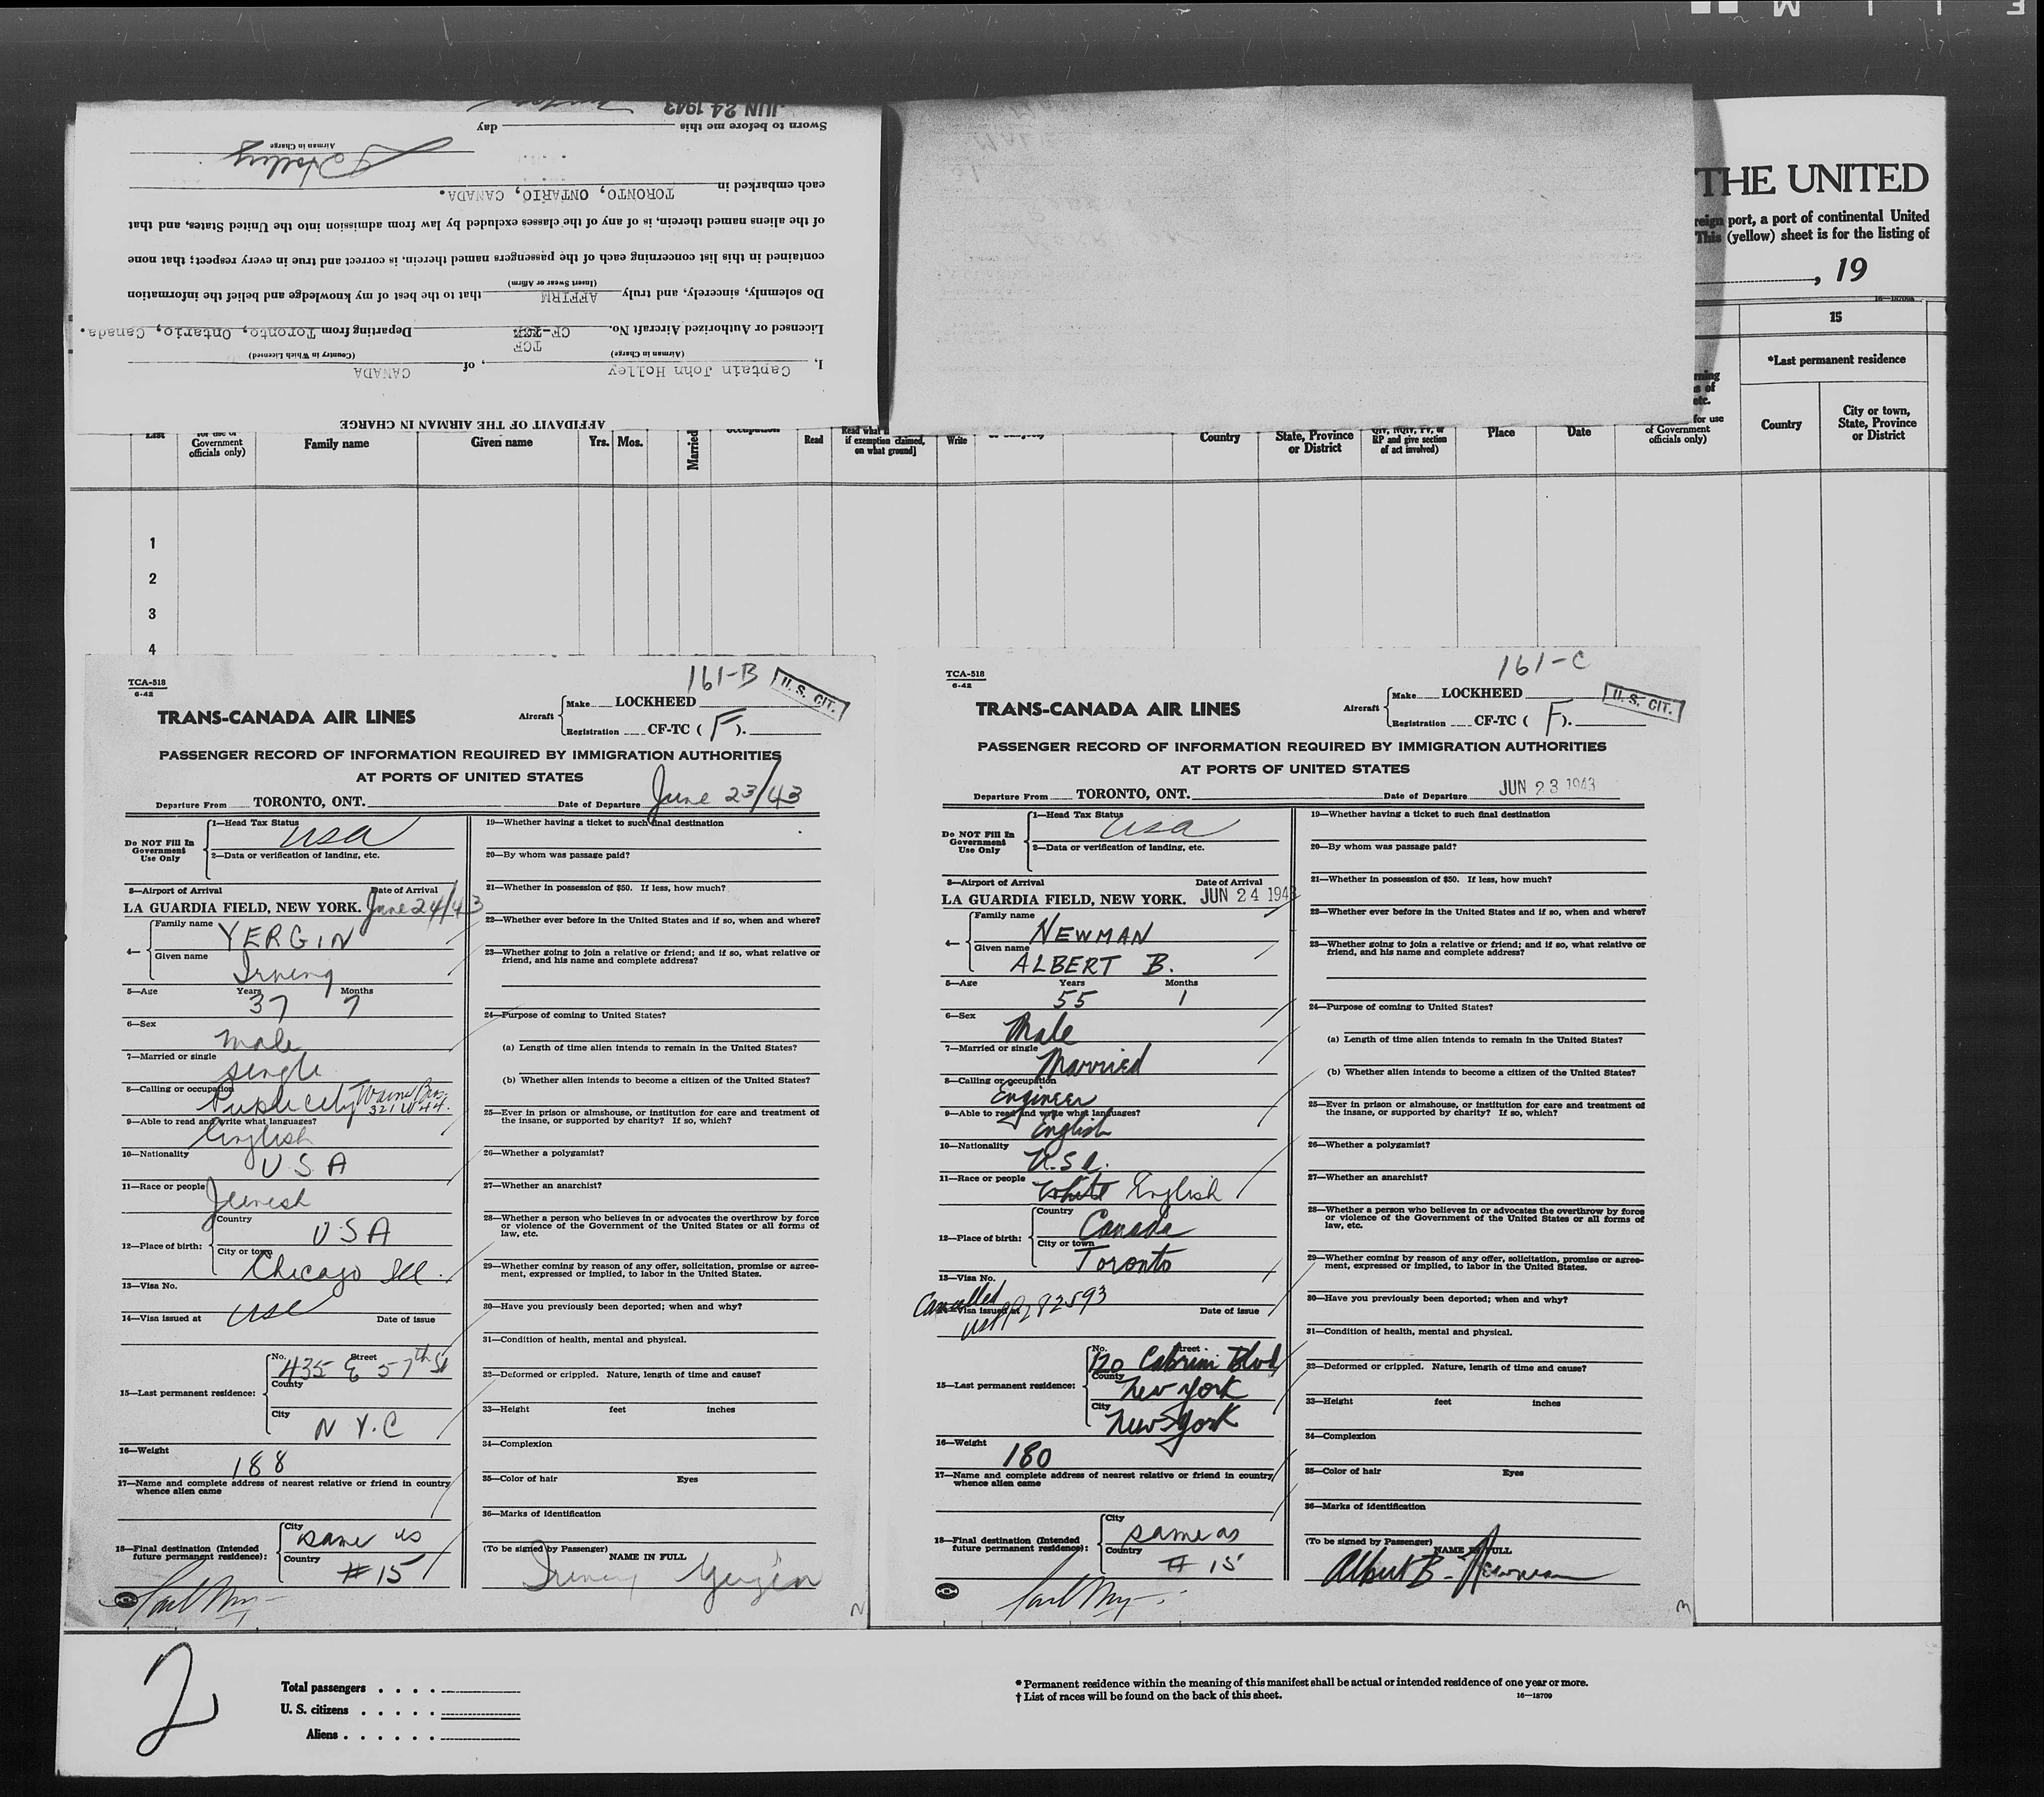 THE UNITED
reign port, a port of continental United
This (yellow) sheet is for the listing of
, 19
16—18709
15
*Last permanent residence
Country
City or town, State, Province or District
AFFIDAVIT OF THE AIRMAN IN CHARGE
I, Captain John Holley, of CANADA
(Airman in Charge) (Country in Which Licensed)
TCF
Licensed or Authorized Aircraft No. CF- Departing from Toronto, Ontario, Canada.
Do solemnly, sincerely, and truly AFFIRM that to the best of my knowledge and belief the information
(Insert Swear or Affirm)
contained in this list concerning each of the passengers named therein, is correct and true in every respect; that none
of the aliens named therein, is of any of the classes excluded by law from admission into the United States, and that
each embarked in TORONTO, ONTARIO, CANADA.
J Holley
Airman in Charge
Sworn to before me this day
JUN 24 1943
Government officials only)
Family name
Given name
Yrs.
Mos.
Married
Read
Read what if exemption claimed, on what ground]
Write
Country
State, Province or District
RP and give section of act involved)
Place
Date
for use of Government officials only)
1
2
3
4
161-B
U. S. CIT.
TCA-518
6-42
TRANS-CANADA AIR LINES
Aircraft Make LOCKHEED
Registration CF-TC (F).
PASSENGER RECORD OF INFORMATION REQUIRED BY IMMIGRATION AUTHORITIES
AT PORTS OF UNITED STATES
Departure From TORONTO, ONT. Date of Departure June 23/43
Do NOT Fill In Government Use Only
1—Head Tax Status USA
2—Data or verification of landing, etc.
3—Airport of Arrival Date of Arrival
LA GUARDIA FIELD, NEW YORK. June 24/43
4— Family name YERGIN
Given name Irving
5—Age Years 37 Months 7
6—Sex male
7—Married or single single
8—Calling or occupation Publicity Warner Bros. 321 W 44.
9—Able to read and write what languages? English
10—Nationality USA
11—Race or people Jewish
12—Place of birth: Country USA
City or town Chicago Ill.
13—Visa No.
14—Visa issued at Date of issue
USC
15—Last permanent residence: No. Street 435 E 57th St
County
City N Y.C
16—Weight 188
17—Name and complete address of nearest relative or friend in country whence alien came
18—Final destination (Intended future permanent residence): City same as
Country #15
19—Whether having a ticket to such final destination
20—By whom was passage paid?
21—Whether in possession of $50. If less, how much?
22—Whether ever before in the United States and if so, when and where?
23—Whether going to join a relative or friend; and if so, what relative or friend, and his name and complete address?
24—Purpose of coming to United States?
(a) Length of time alien intends to remain in the United States?
(b) Whether alien intends to become a citizen of the United States?
25—Ever in prison or almshouse, or institution for care and treatment of the insane, or supported by charity? If so, which?
26—Whether a polygamist?
27—Whether an anarchist?
28—Whether a person who believes in or advocates the overthrow by force or violence of the Government of the United States or all forms of law, etc.
29—Whether coming by reason of any offer, solicitation, promise or agreement, expressed or implied, to labor in the United States.
30—Have you previously been deported; when and why?
31—Condition of health, mental and physical.
32—Deformed or crippled. Nature, length of time and cause?
33—Height feet inches
34—Complexion
35—Color of hair Eyes
36—Marks of identification
(To be signed by Passenger) NAME IN FULL
Irving Yergin
2
161-C
U. S. CIT.
TCA-518
6-42
TRANS-CANADA AIR LINES
Aircraft Make LOCKHEED
Registration CF-TC (F).
PASSENGER RECORD OF INFORMATION REQUIRED BY IMMIGRATION AUTHORITIES
AT PORTS OF UNITED STATES
Departure From TORONTO, ONT. Date of Departure JUN 23 1943
Do NOT Fill In Government Use Only
1—Head Tax Status USA
2—Data or verification of landing, etc.
3—Airport of Arrival Date of Arrival
LA GUARDIA FIELD, NEW YORK. JUN 24 1943
4— Family name NEWMAN
Given name ALBERT B.
5—Age Years 55 Months 1
6—Sex Male
7—Married or single Married
8—Calling or occupation Engineer
9—Able to read and write what languages? English
10—Nationality U.S.A.
11—Race or people White English
12—Place of birth: Country Canada
City or town Toronto
13—Visa No.
Cancelled
14—Visa issued at Date of issue
USPP 282593
15—Last permanent residence: No. Street 120 Cabrini Blvd
County New York
City New York
16—Weight 180
17—Name and complete address of nearest relative or friend in country whence alien came
18—Final destination (Intended future permanent residence): City same as
Country #15
19—Whether having a ticket to such final destination
20—By whom was passage paid?
21—Whether in possession of $50. If less, how much?
22—Whether ever before in the United States and if so, when and where?
23—Whether going to join a relative or friend; and if so, what relative or friend, and his name and complete address?
24—Purpose of coming to United States?
(a) Length of time alien intends to remain in the United States?
(b) Whether alien intends to become a citizen of the United States?
25—Ever in prison or almshouse, or institution for care and treatment of the insane, or supported by charity? If so, which?
26—Whether a polygamist?
27—Whether an anarchist?
28—Whether a person who believes in or advocates the overthrow by force or violence of the Government of the United States or all forms of law, etc.
29—Whether coming by reason of any offer, solicitation, promise or agreement, expressed or implied, to labor in the United States.
30—Have you previously been deported; when and why?
31—Condition of health, mental and physical.
32—Deformed or crippled. Nature, length of time and cause?
33—Height feet inches
34—Complexion
35—Color of hair Eyes
36—Marks of identification
(To be signed by Passenger) NAME IN FULL
Albert B. Newman
3
2
Total passengers
U. S. citizens
Aliens
* Permanent residence within the meaning of this manifest shall be actual or intended residence of one year or more.
† List of races will be found on the back of this sheet.
16—18709